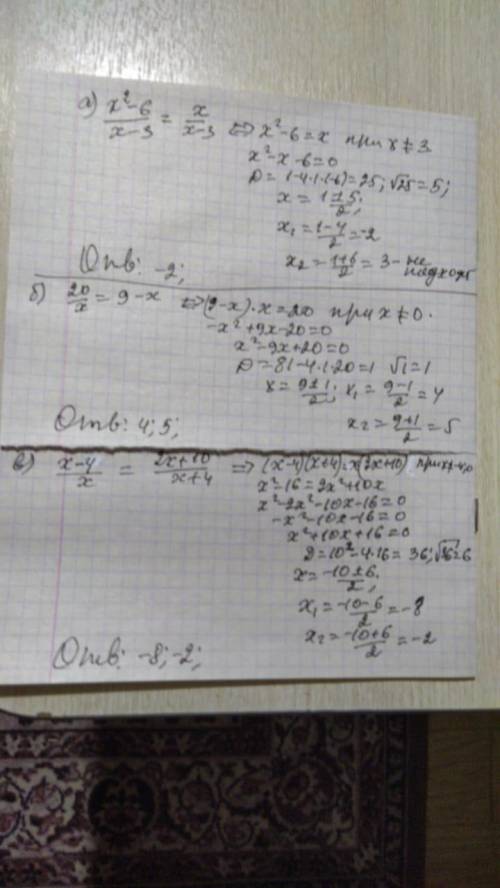 а) x²-6/x-3 = x/x-3 ⇔ x²-6=x при x≠3
x²-x-6=0
D=1-4·1·(-6)=25; √25=5;
x=1±5/2;
x₁=1-4/2=-2
x₂=1+6/2=3- не подходит
Отв: -2;
б) 20/x=9-x ⇔(9-x)·x=20 при x≠0.
-x²+9x-20=0
x²-9x+20=0
D=81-4·1·20=1 √1=1
x=9±1/2; x₁=9-1/2=4
x₂=9+1/2=5
Отв: 4; 5;
в) x-4/x = 2x+10/x+4 ⇒(x-4)(x+4)=x(2x+10) при x≠-4;0
x²-16=2x²+10x
x²-2x²-10x-16=0
-x²-10x-16=0
x²+10x+16=0
D=10²-4·16=36; √36=6
x=-10±6/2;
x₁=-10-6/2=-8
x₂=-10+6/2=-2
Отв: -8; -2;